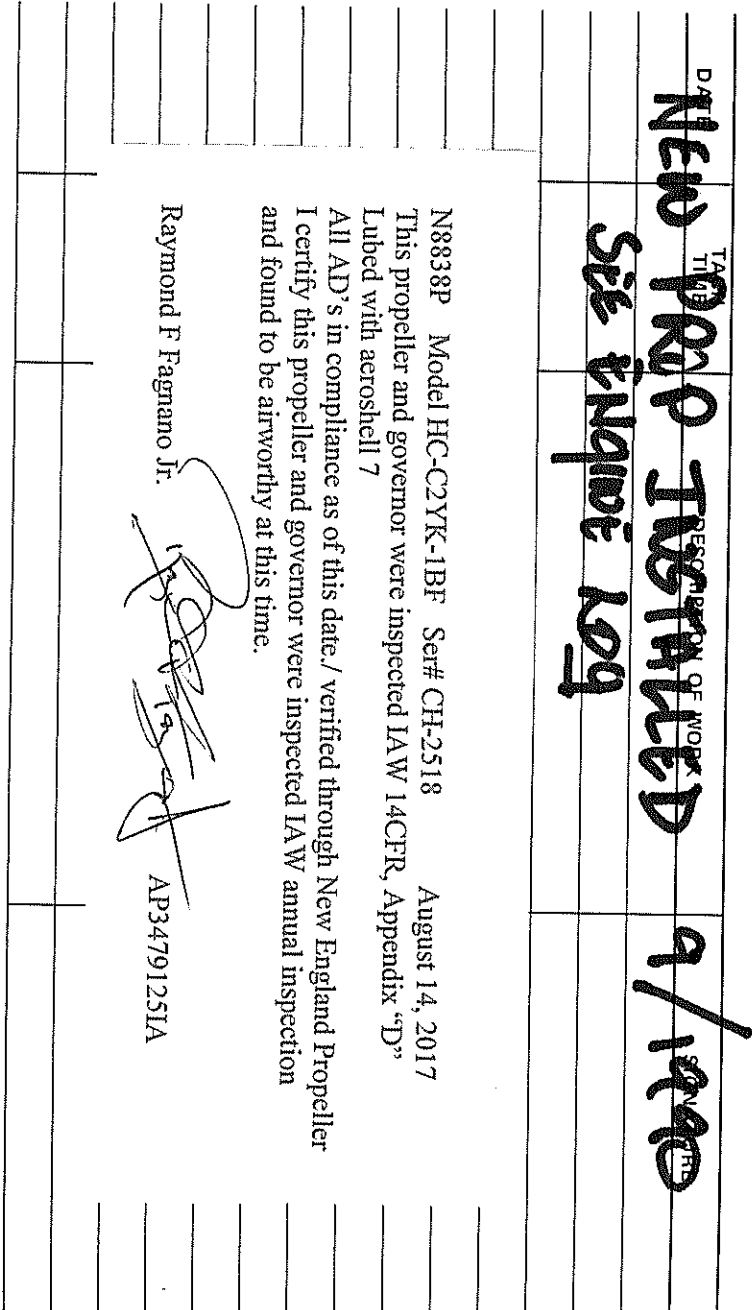 DATE TACH TIME DESCRIPTION OF WORK SIGNATURE
NEW PROP INSTALLED 9/1990
SEE ENGINE LOG
N8838P Model HC-C2YK-1BF Ser# CH-2518 August 14, 2017
This propeller and governor were inspected IAW 14CFR, Appendix “D”
Lubed with aeroshell 7
All AD's in compliance as of this date./ verified through New England Propeller
I certify this propeller and governor were inspected IAW annual inspection
and found to be airworthy at this time.
Raymond F Fagnano Jr. AP3479125IA